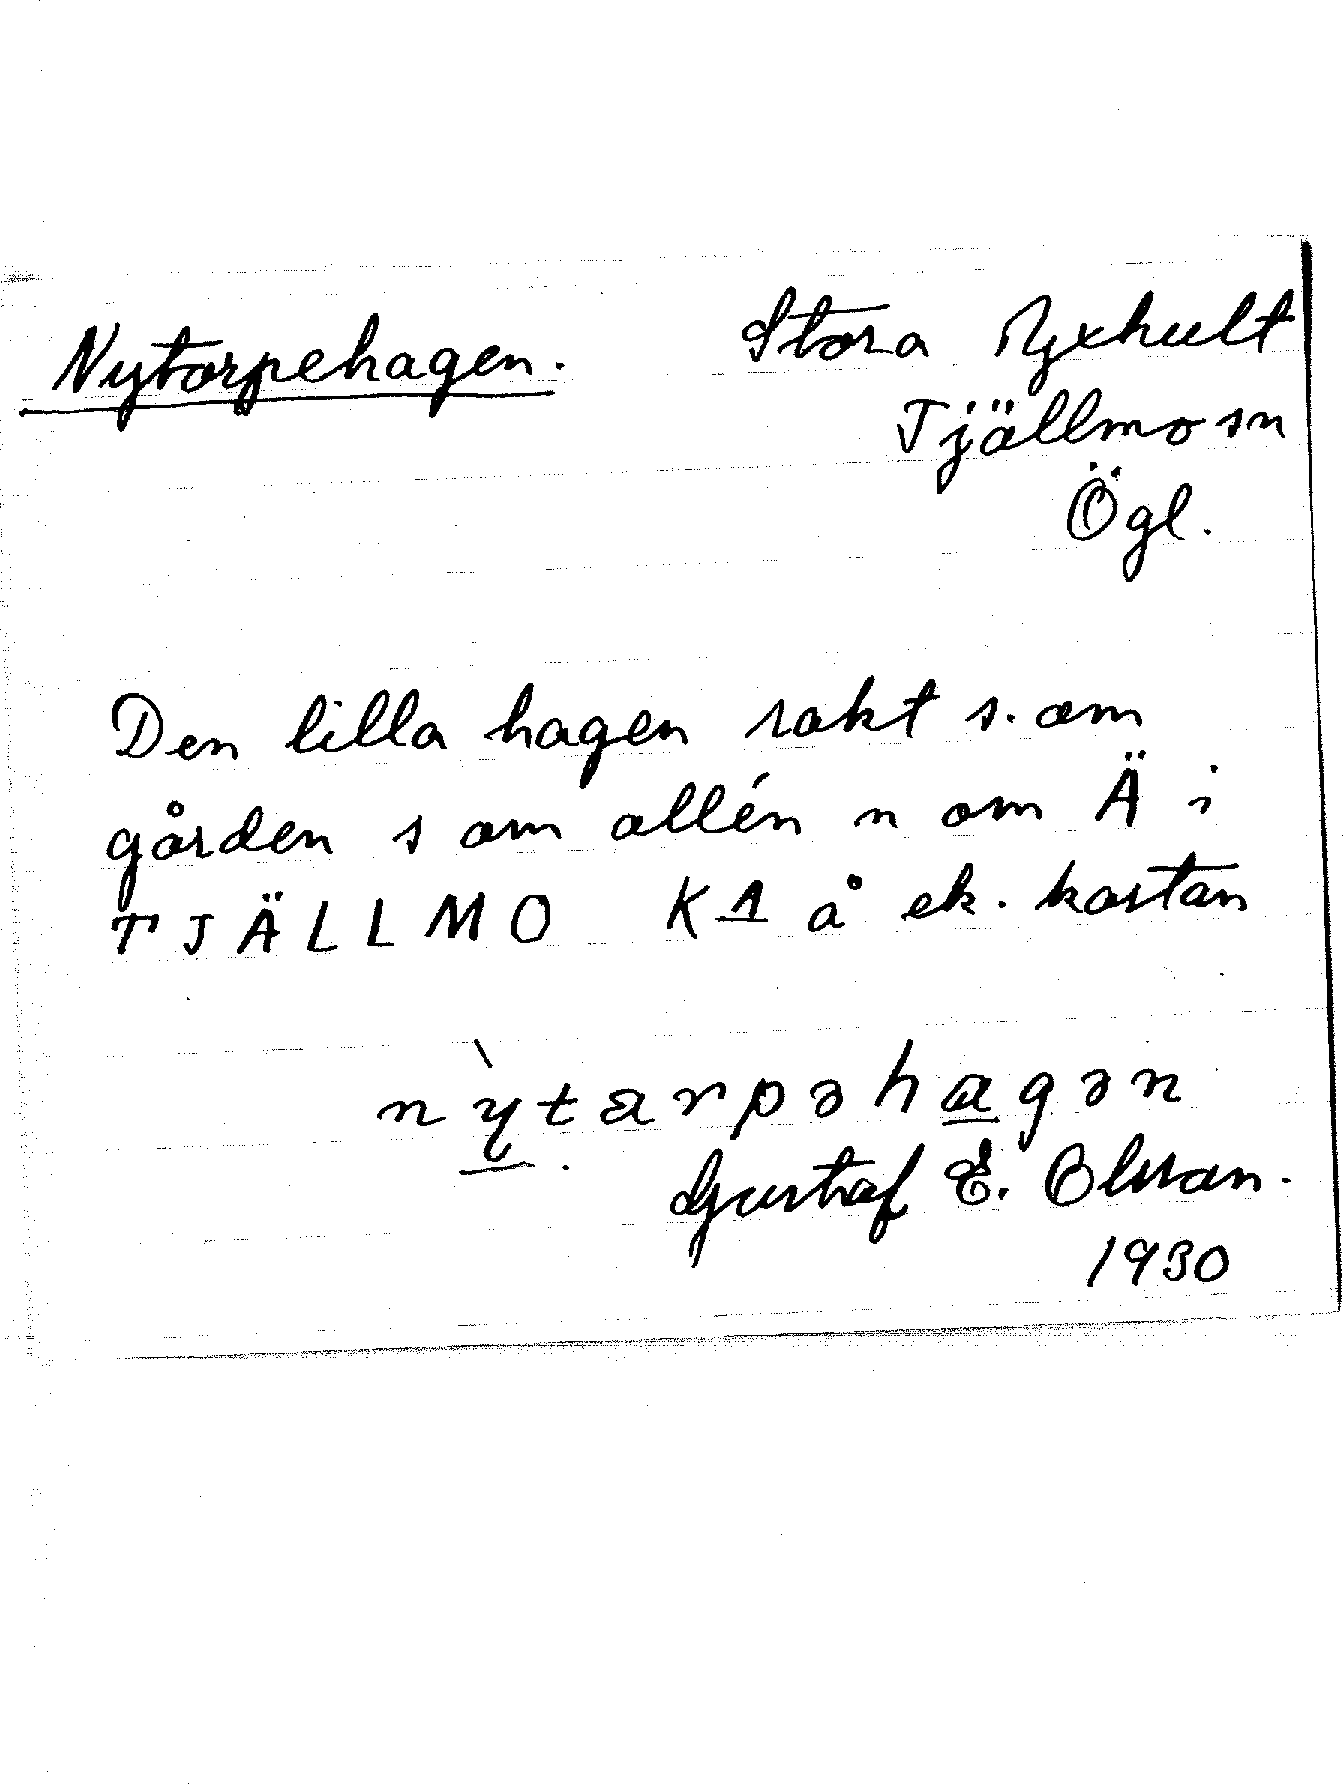 Nytorpehagen. Stora Yxhult
Tjällmo sn
Ögl.
Den lilla hagen rakt s. om
gården s om allén n om Ä i
TJÄLLMO K1 å ek. kartan
nỳtarpəhagən
Gustaf E. Olsson.
1930